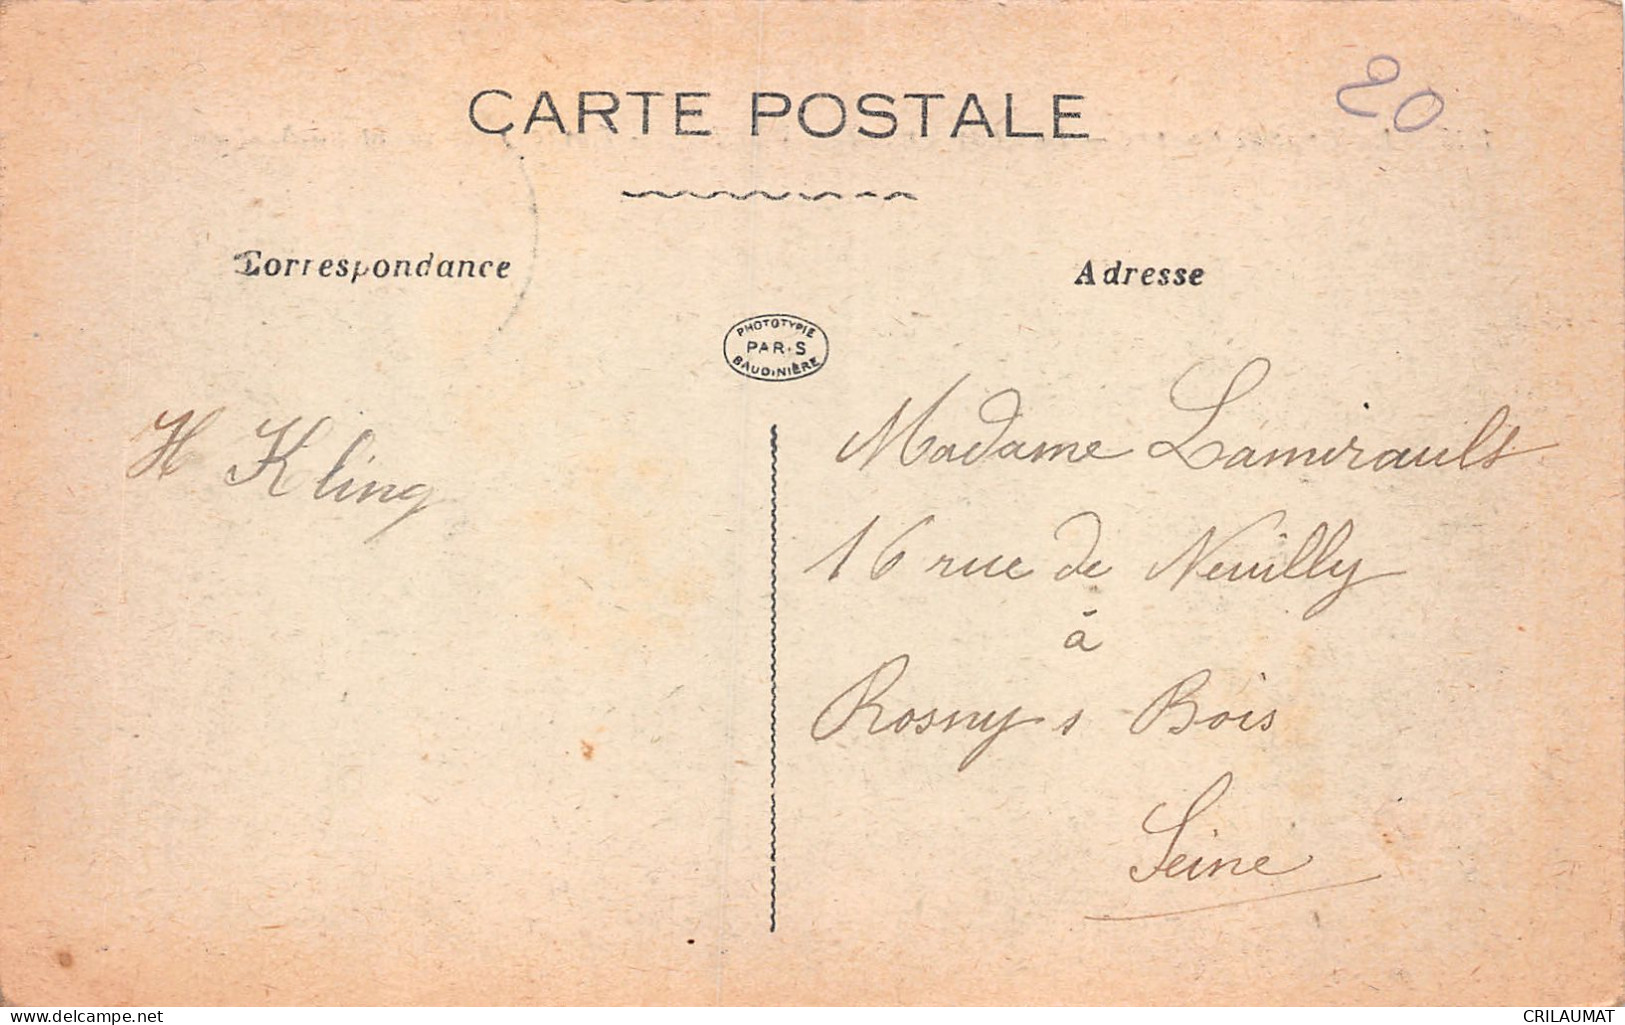 CARTE POSTALE
20
Correspondance
Adresse
PHOTOTYPIE
PARIS
BAUDINIÈRE
H Kling
Madame Lamirault
16 rue de Neuilly
à
Rosny s Bois
Seine
www.delcampe.net
CRILAUMAT